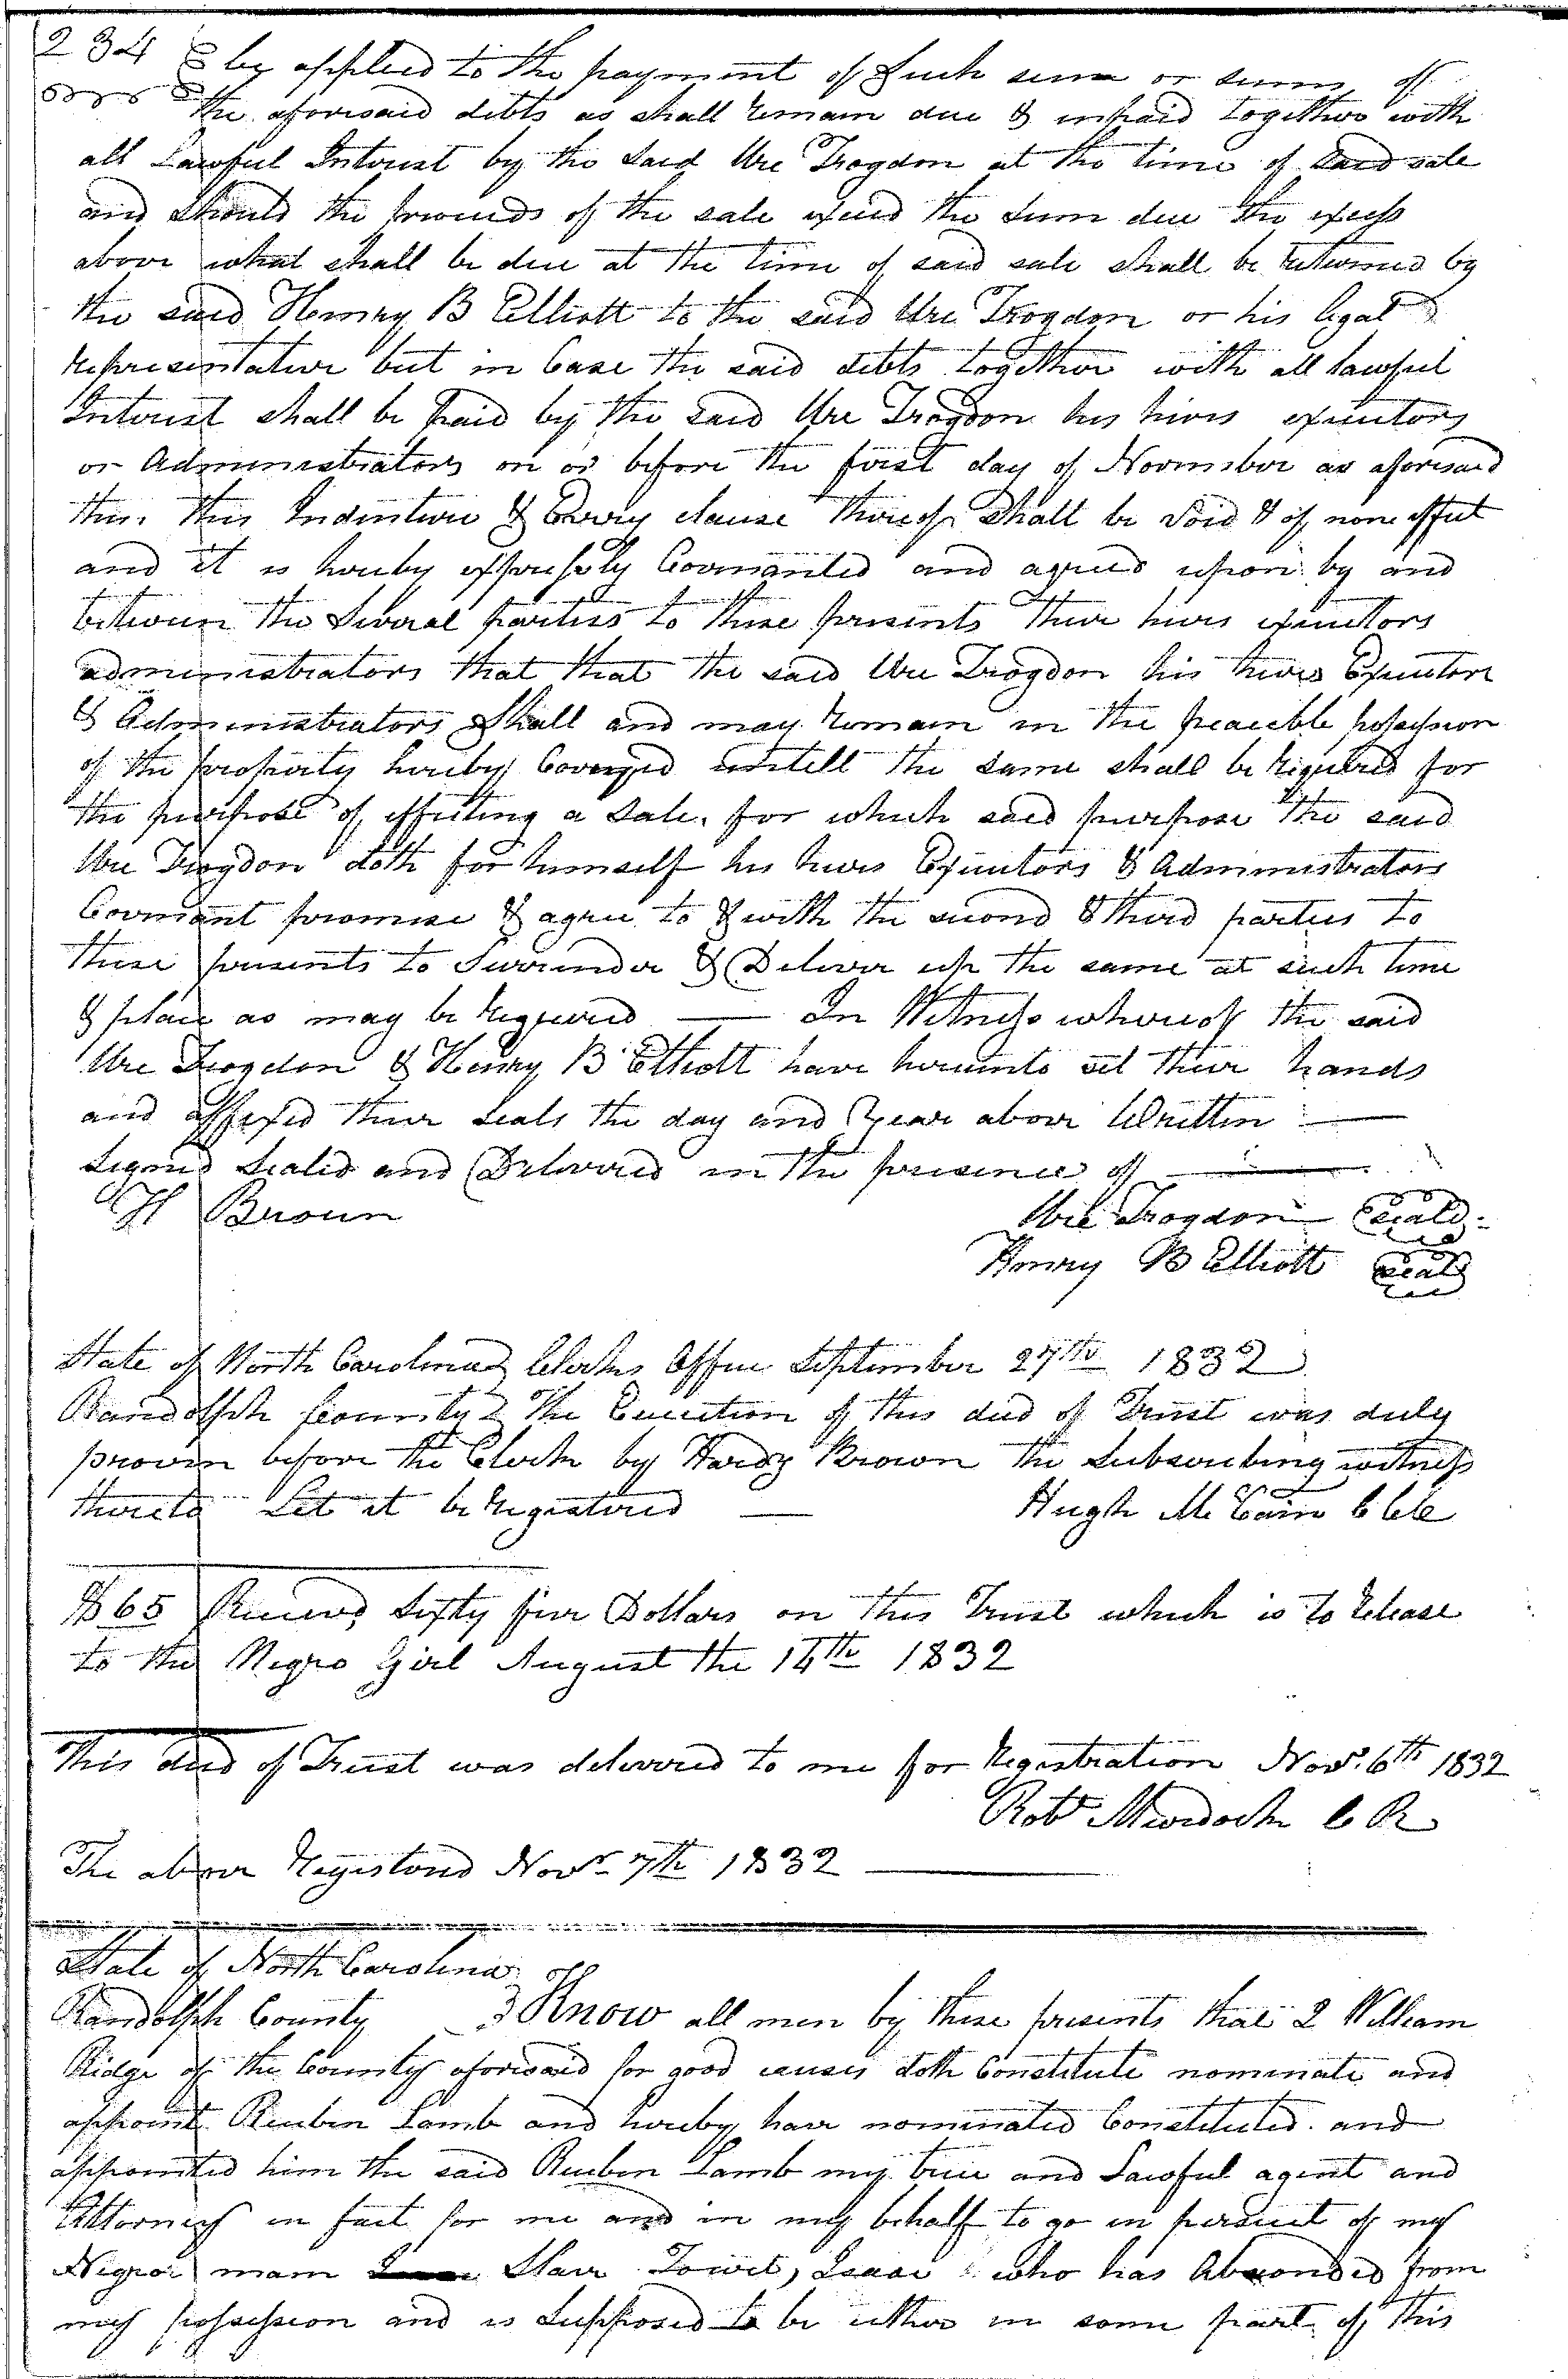 234 be applied to the payment of Such sum or sums of
the aforesaid debts as shall remain due & unpaid together with
all Lawful Interest by the Said Ure Trogdon at the time of Said sale
and Should the proceeds of the sale exceed the Sum due the excess
above what shall be due at the time of said sale shall be returned by
the said Henry B Elliott to the said Ure Trogdon or his legal
representative but in Case the said debts together with all lawful
Interest shall be paid by the Said Ure Trogdon his heirs executors
or Administrators on or before the first day of November as aforesaid
then this Indenture & Every clause thereof Shall be Void & of none effect
and it is hereby expressly Covenanted and agreed upon by and
between the Several parties to these presents their heirs executors
administrators that that the said Ure Trogdon his heirs Executors
& Administrators Shall and may remain in the peaceble possession
of the property hereby Conveyed untill the same shall be required for
the purpose of effecting a Sale, for which said purpose the said
Ure Trogdon doth for himself his heirs Executors & Administrators
Covenant promise & agree to & with the second & third parties to
these presents to Surrender & Deliver up the same at such time
& place as may be required — In Witness whereof the said
Ure Trogdon & Henry B Elliott have hereunto set their hands
and affixed their Seals the day and year above Written —
Signed Sealed and Delivered in the presence of —
H Brown
Ure Trogdon Seal
Henry B Elliott Seal
State of North Carolina Clerks Office September 27th 1832
Randolph County The Execution of this deed of Trust was duly
proven before the Clerk by Hardy Brown the Subscribing witness
thereto Let it be registered —
Hugh McCain C Clk
$65 Received Sixty five Dollars on this Trust which is to release
to the Negro Girl August the 14th 1832
This deed of Trust was delivered to me for registration Novr. 6th 1832
Robt Murdoch C R
The above Registered Novr 7th 1832 —
State of North Carolina
Randolph County } Know all men by these presents that I William
Ridge of the County aforesaid for good causes doth Constitute nominate and
appoint Reuben Lamb and hereby have nominated Constituted and
appointed him the said Reuben Lamb my true and Lawful agent and
Attorney in fact for me and in my behalf to go in persuit of my
Negroe mam Slave Towit, Isaac who has Absconded from
my possession and is Supposed to be either in some part of this